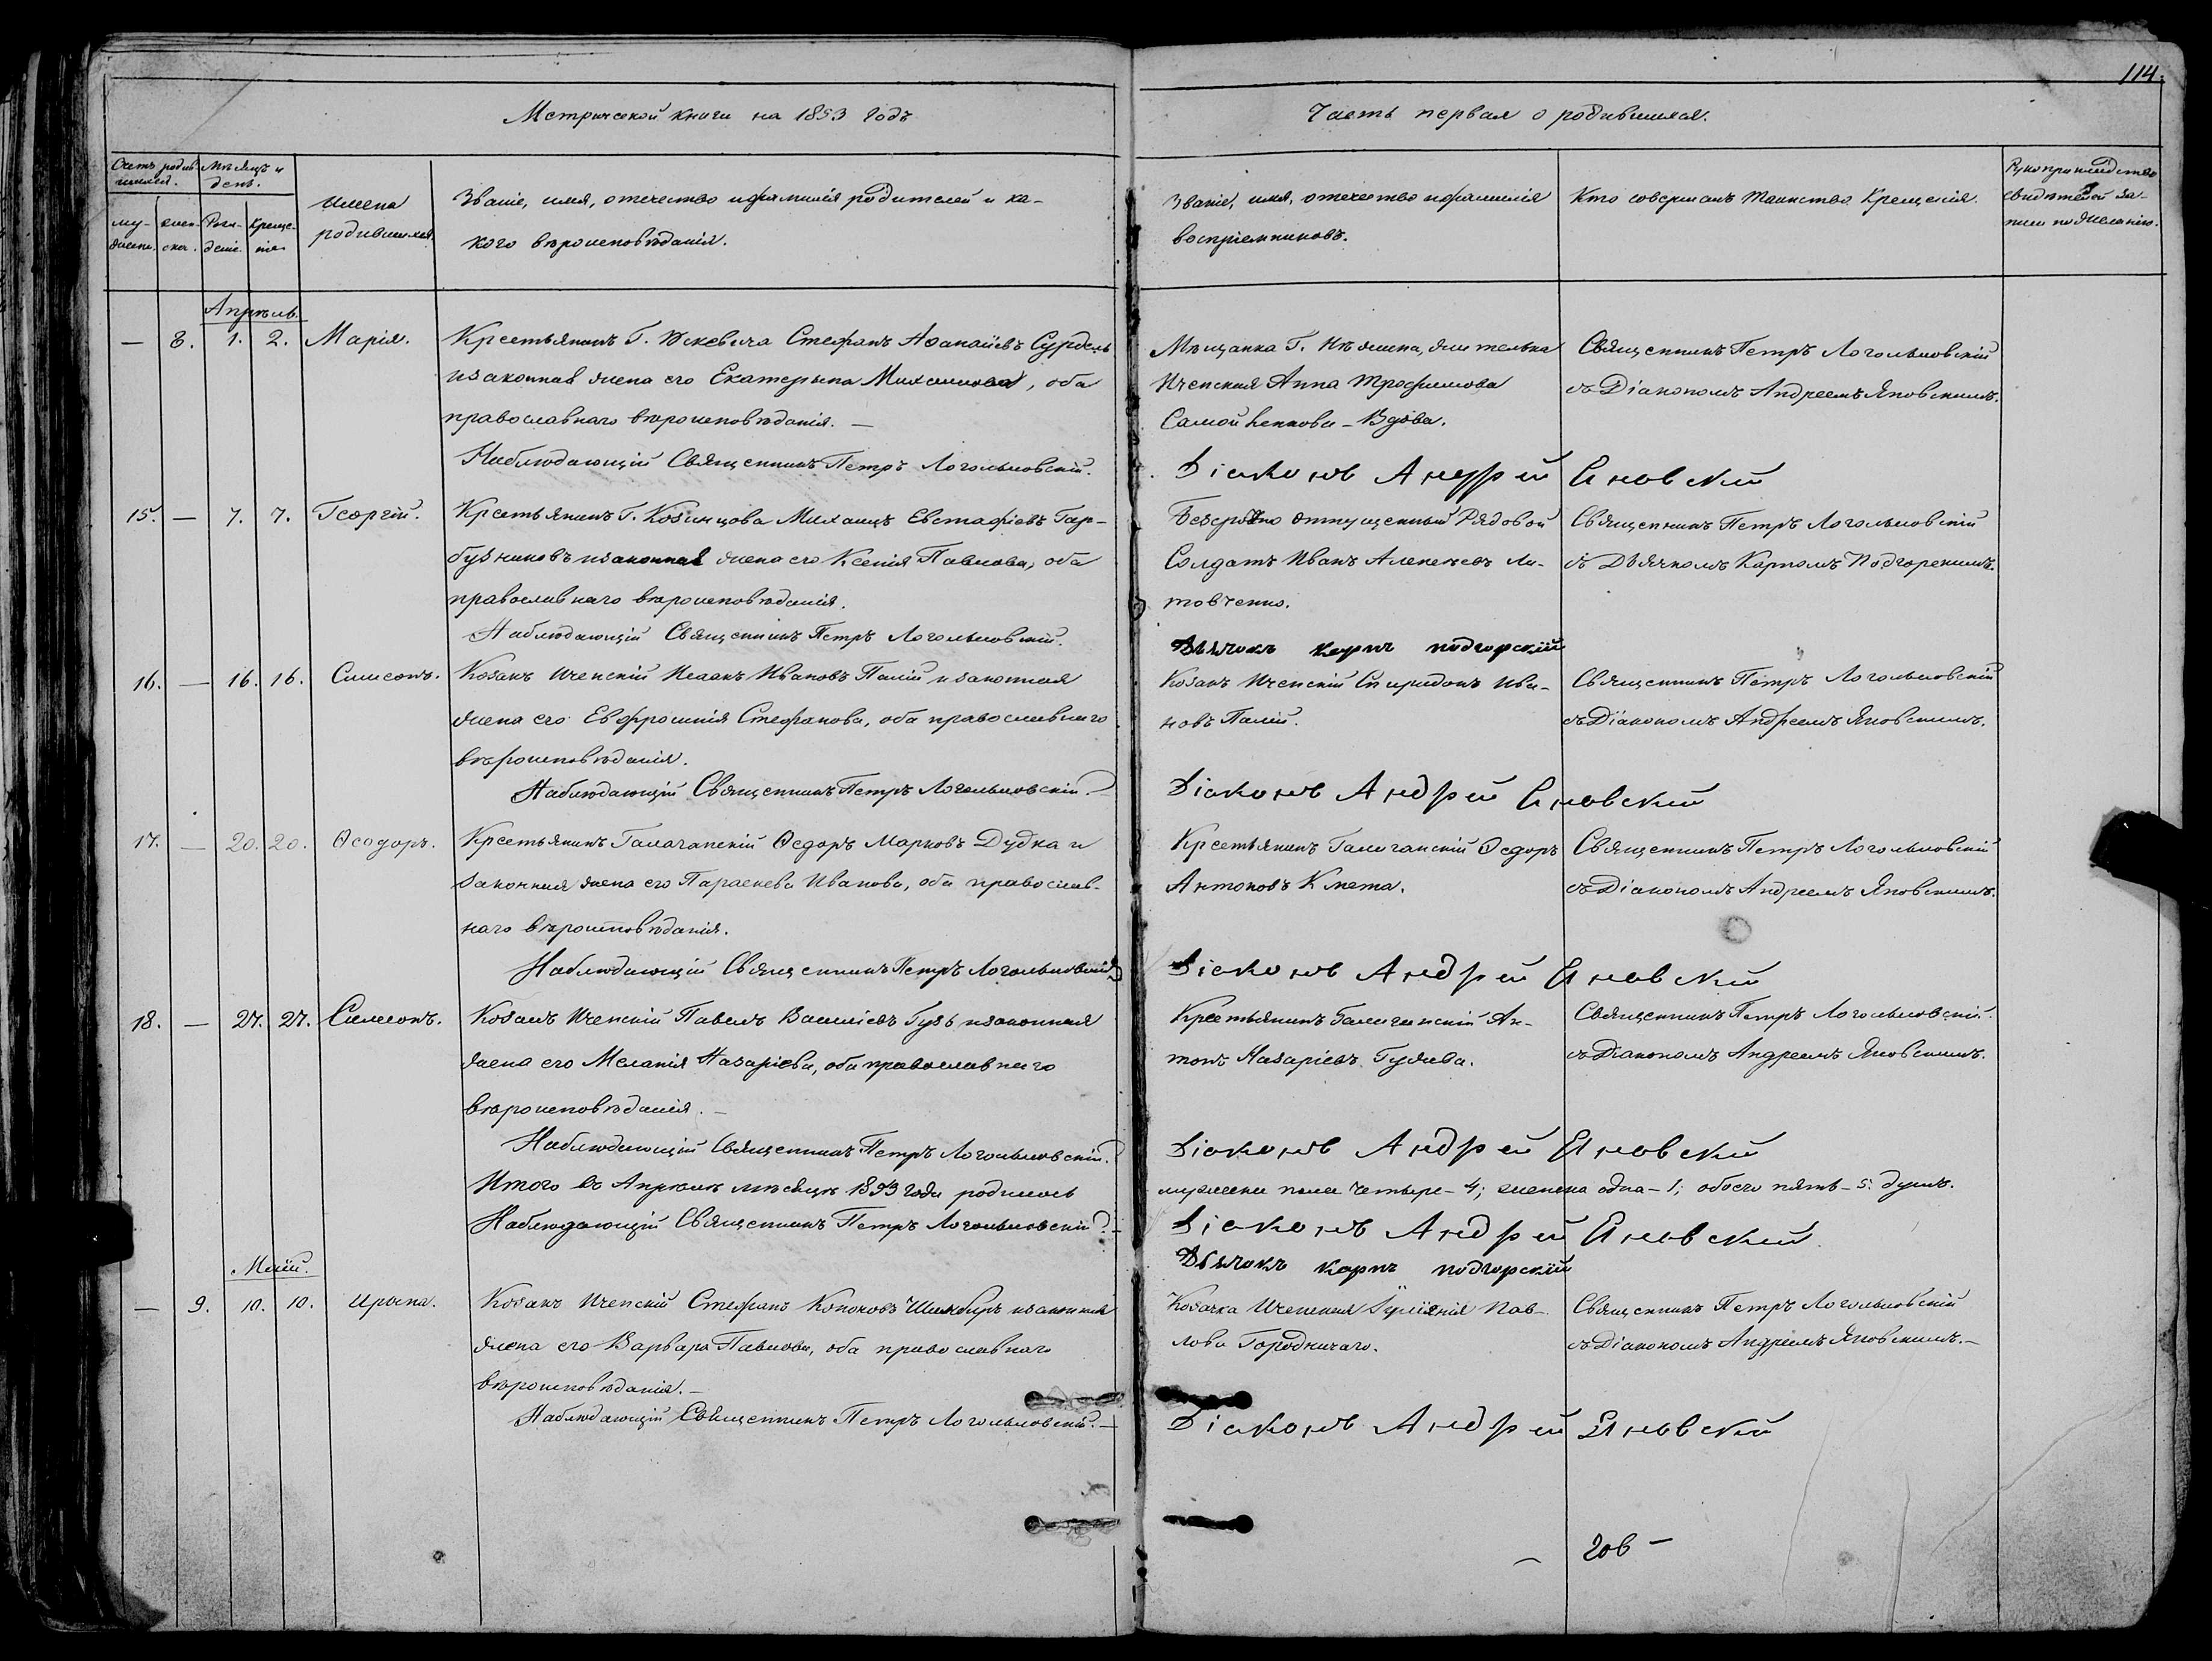 114.
Метрической книги на 1853 годъ
Часть первая о родившихся.
Счетъ родив-
шихся.
Мѣсяцъ и
день.
му-
жеск.
жен-
ска.
Рож-
деніе.
Креще-
нія
Имена
родившихся
Званіе, имя, отечество и фамилія родителей и ка-
кого вѣроисповѣданія.
Званіе, имя, отечество и фамилія
воспріемниковъ.
Кто совершалъ Таинство Крещенія.
Рукоприкладство
свидѣтелей за-
писи по желанію.
Апрѣль.
— 8. 1. 2. Марія.
Крестьянинъ Г. Стефанъ Аѳанаіевъ
и законная жена его Екатерына Михаилова, оба
православнаго вѣроисповѣданія. —
Наблюдающій Священникъ Петръ Логольвовскій.
Мѣщанка Г. Нѣжина, жителька
Иченская Анна Трофимова
Самойленкова – Вдова.
Священникъ Петръ Логольвовскій
съ Діакономъ Андреемъ Яновскимъ.
Діаконъ Андрей Яновский
15. — 7. 7. Георгій.
Крестьянинъ Г. Михаилъ Евстафіевъ Гар-
бузниковъ и законная жена его Ксенія Павлова, оба
православнаго вѣроисповѣданія.
Наблюдающій Священникъ Петръ Логольвовскій.
Безсрочно отпущенный Рядовой
Солдатъ Иванъ Алексѣевъ Ли-
товченко.
Священникъ Петръ Логольвовскій
съ Дьячкомъ Карпомъ Подгорскимъ.
Дьячокъ карпъ подгорскій
16. — 16. 16. Симеонъ.
Козакъ Иченскій Исаакъ Ивановъ Палій и законная
жена его Евфросинія Стефанова, оба православнаго
вѣроисповѣданія.
Наблюдающій Священникъ Петръ Логольвовскій.
Козакъ Иченскій Спиридонъ Ива-
новъ Палій.
Священникъ Петръ Логольвовскій
съ Діакономъ Андреемъ Яновскимъ.
Діаконъ Андрей Яновский
17. — 20. 20. Ѳеодоръ.
Крестьянинъ Галаганскій Ѳедоръ Марковъ Дудка и
законная жена его Параскева Иванова, оба православ-
наго вѣроисповѣданія.
Наблюдающій Священникъ Петръ Логольвовскій
Крестьянинъ Галаганскій Ѳедоръ
Антоновъ Кмета.
Священникъ Петръ Логольвовскій
съ Діакономъ Андреемъ Яновскимъ.
Діаконъ Андрей Яновский
18. — 27. 27. Симеонъ.
Козакъ Иченскій Павелъ Василіевъ Гузь и законная
жена его Меланія Назаріева, оба православнаго
вѣроисповѣданія. —
Наблюдающій Священникъ Петръ Логольвовскій.
Крестьянинъ Галаганскій Ан-
тонъ Назаріевъ
Священникъ Петръ Логольвовскій.
съ Діакономъ Андреемъ Яновскимъ.
Діаконъ Андрей Яновский
Итого въ Апрѣлѣ мѣсяцѣ 1853 года родилось
мужеска пола четыре – 4; женска одна – 1; обоего пять – 5. душъ.
Наблюдающій Священникъ Петръ Логольвовскій. —
Діаконъ Андрей Яновский.
Дьячокъ карпъ подгорскій
Маій.
— 9. 10. 10. Ирына.
Козакъ Иченскій Стефанъ Кононовъ и законная
жена его Варвара Павлова, оба православнаго
вѣроисповѣданія. —
Наблюдающій Священникъ Петръ Логольвовскій. —
Козачка Иченская Іуліянія Пав-
лова Городничаго.
Священникъ Петръ Логольвовскій
съ Діакономъ Андреемъ Яновскимъ. —
Діаконъ Андрей Яновский
— гов —